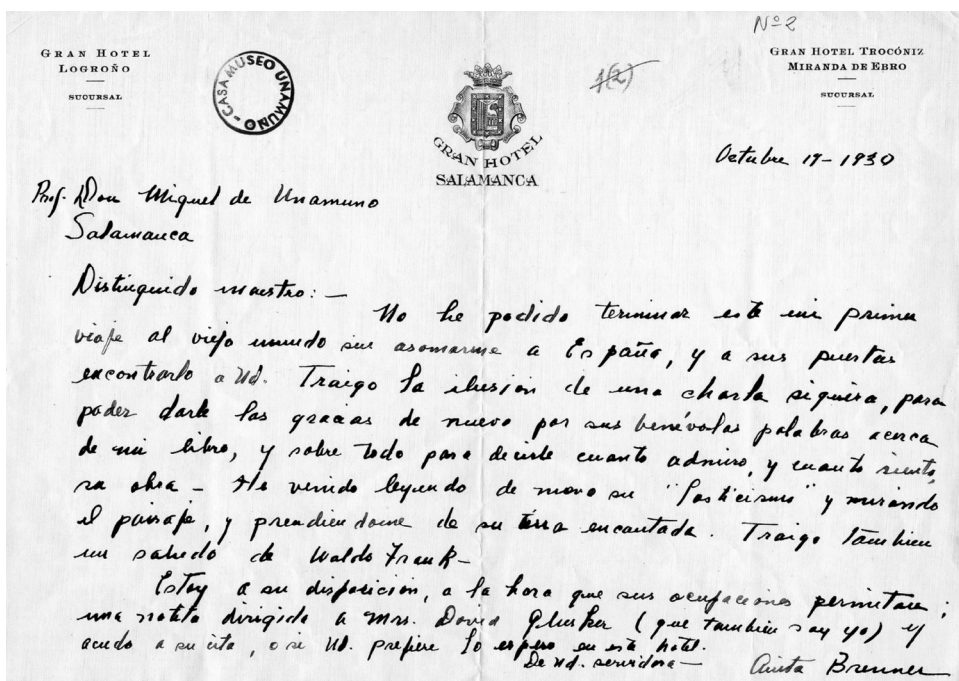 Nº 2
GRAN HOTEL
LOGROÑO
SUCURSAL
CASA MUSEO UNAMUNO
1(2)
GRAN HOTEL
SALAMANCA
GRAN HOTEL TROCÓNIZ
MIRANDA DE EBRO
SUCURSAL
Octubre 19-1930
Prof. Don Miguel de Unamuno
Salamanca
Distinguido maestro: —
No he podido terminar este mi primer
viaje al viejo mundo sin asomarme a España, y a sus puertas
encontrarlo a Ud. Traigo la ilusión de una charla siquiera, para
poder darle las gracias de nuevo por sus benévolas palabras acerca
de mi libro, y sobre todo para decirle cuanto admiro, y cuanto siento,
su obra — He venido leyendo de nuevo su "" y mirando
el paisaje, y prendiendome de su tierra encantada. Traigo tambien
un saludo de Waldo Frank —
Estoy a su disposición, a la hora que sus ocupaciones permitan;
una notita dirigida a Mrs. David Glusker (que tambien soy yo) y
acudo a su cita, o si Ud. prefiere lo espero en este hotel.
De Ud. servidora —
Anita Brenner